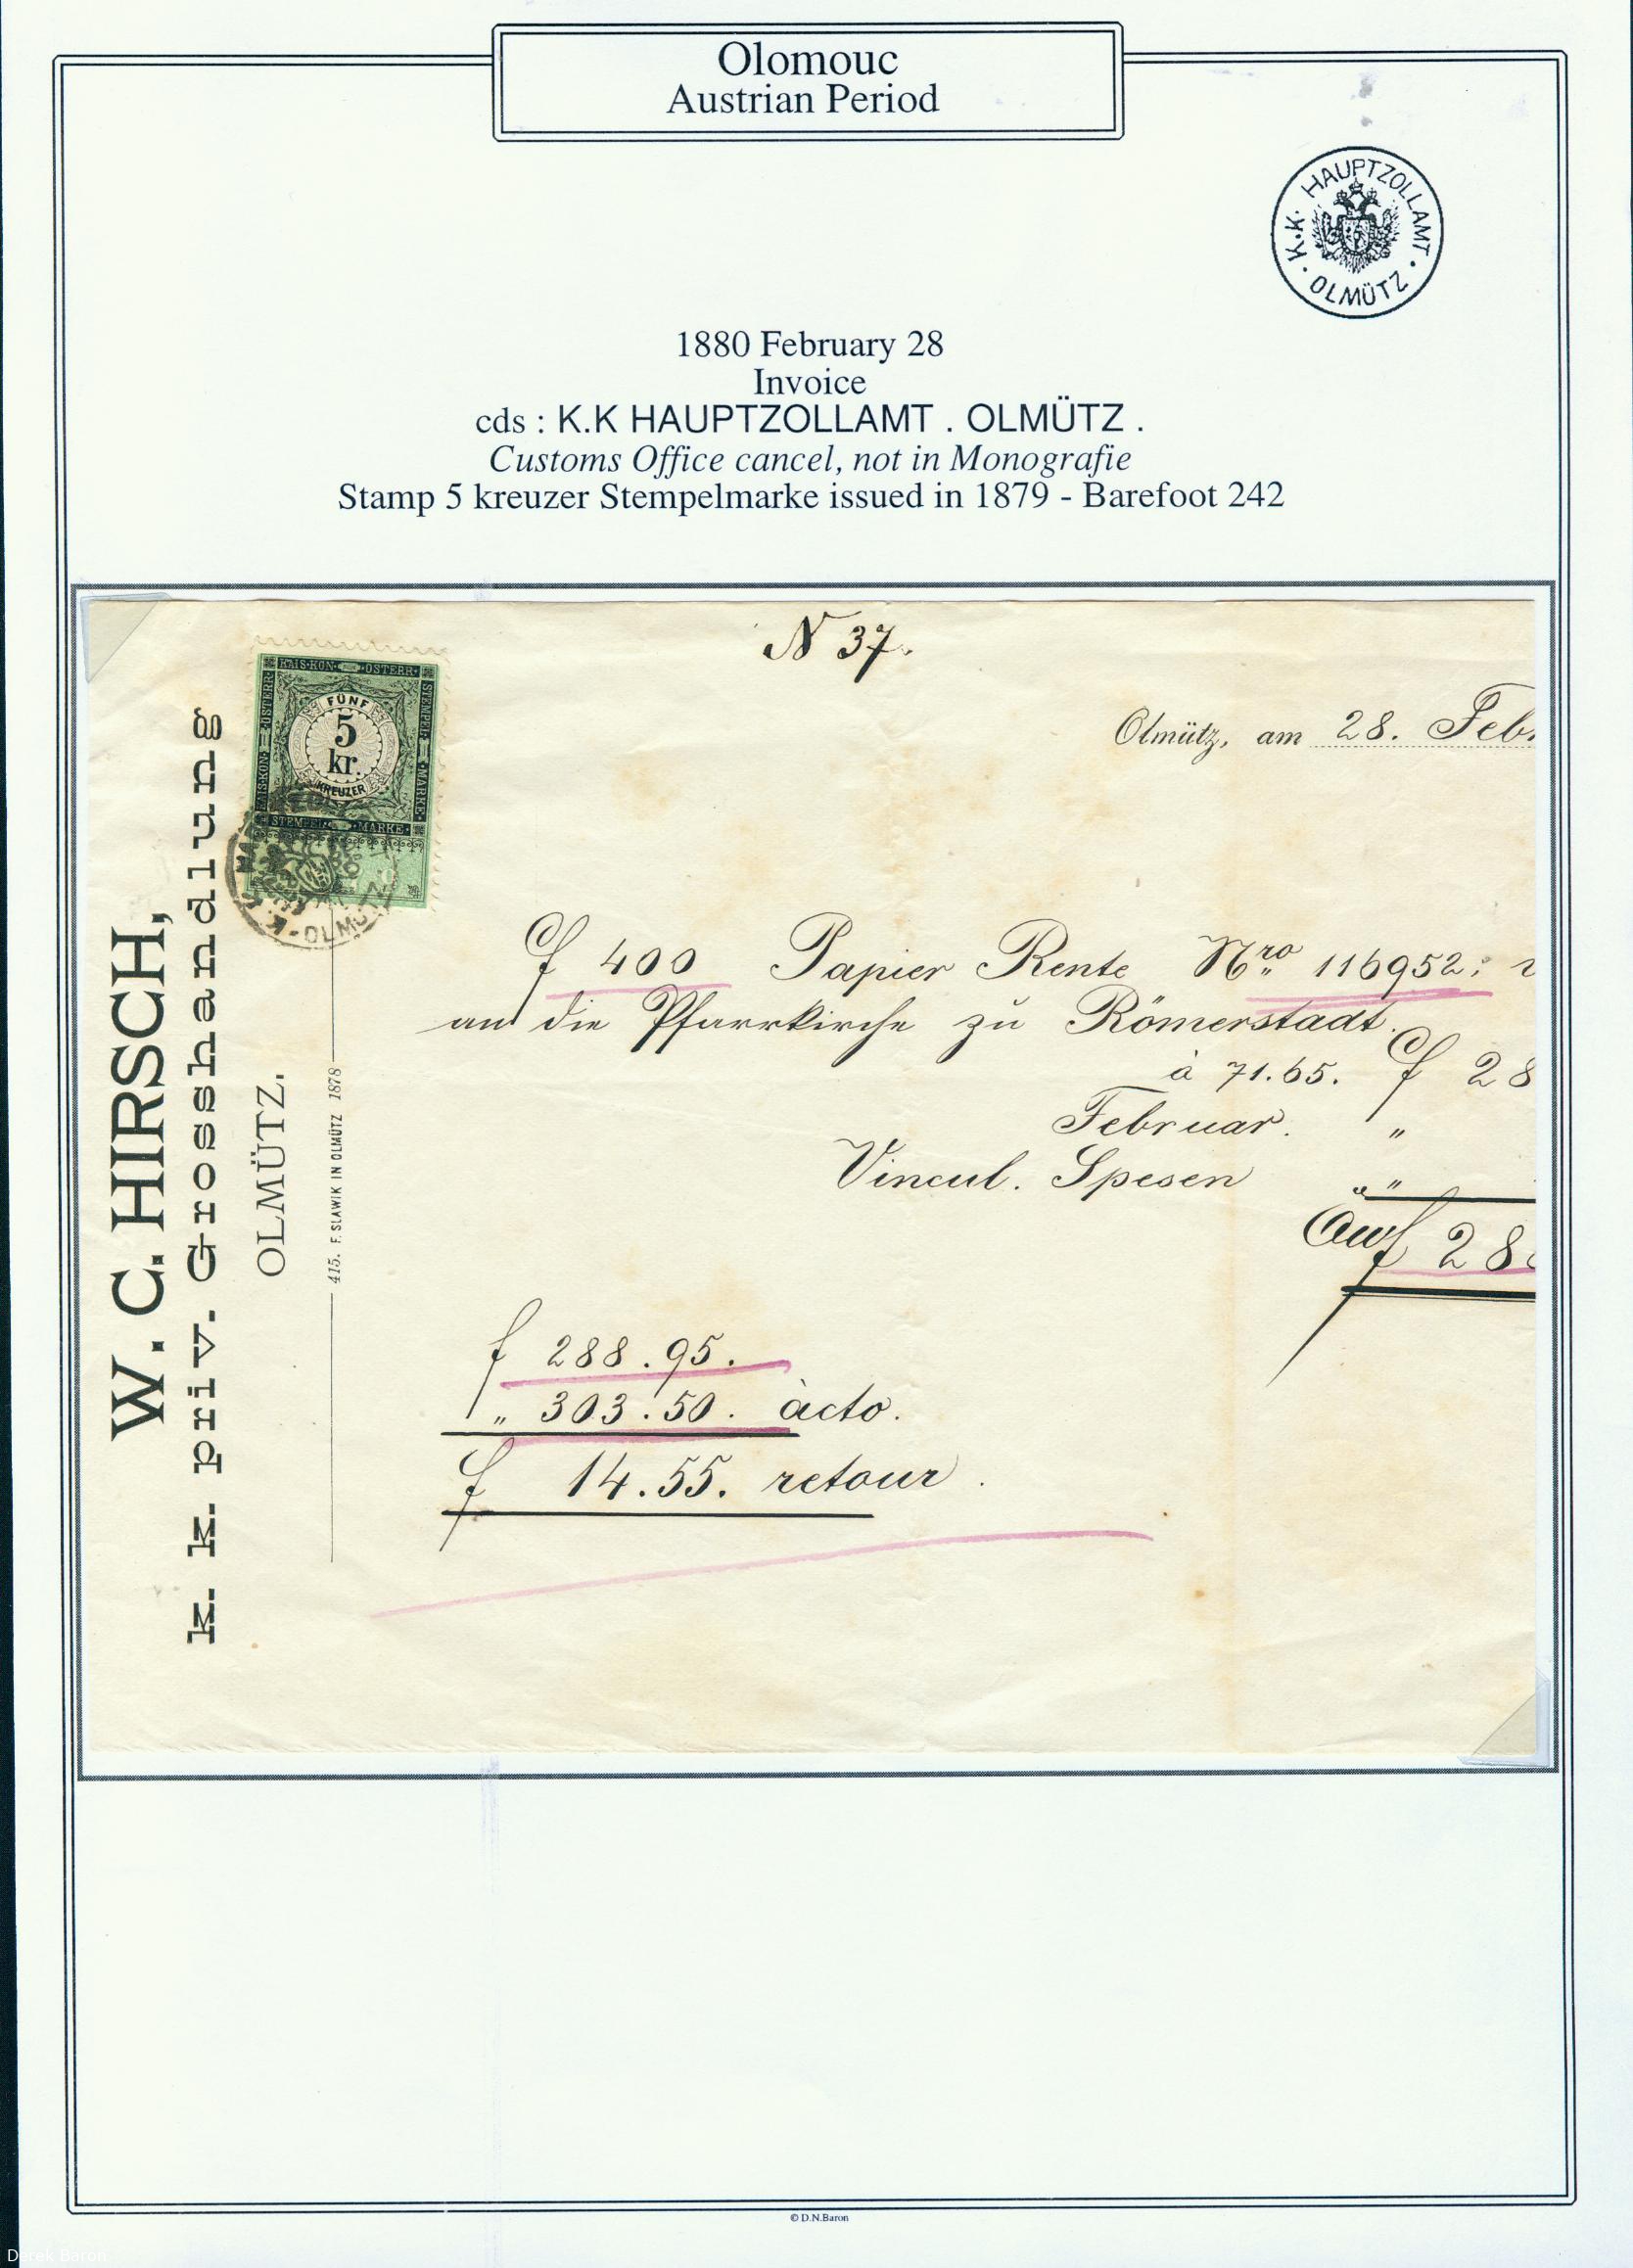 Olomouc
Austrian Period
K.K. HAUPTZOLLAMT · OLMÜTZ ·
1880 February 28
Invoice
cds : K.K HAUPTZOLLAMT . OLMÜTZ .
Customs Office cancel, not in Monografie
Stamp 5 kreuzer Stempelmarke issued in 1879 - Barefoot 242
N 37.
KAIS·KÖN· ÖSTERR·
STEMPEL MARKE
KAIS·KÖN· ÖSTERR·
FÜNF
5
kr.
KREUZER
STEMPEL MARKE
OLMÜTZ
W. C. HIRSCH,
k. k. priv. Grosshandlung
OLMÜTZ.
415. F. SLAWIK IN OLMÜTZ 1878
Olmütz, am 28. Feb.
f 400 Papier Rente Nro 116952:
an die Pfarrkirche zu Römerstadt.
à 71.65. f 28
Februar. "
Vincul. Spesen "
Öwf 28
f 288.95.
" 303.50. àcto.
f 14.55. retour.
© D.N.Baron
Derek Baron